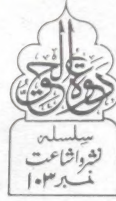 دعوة الحق
سلسلہ
نشر و اشاعت
نمبر ۱۰۳